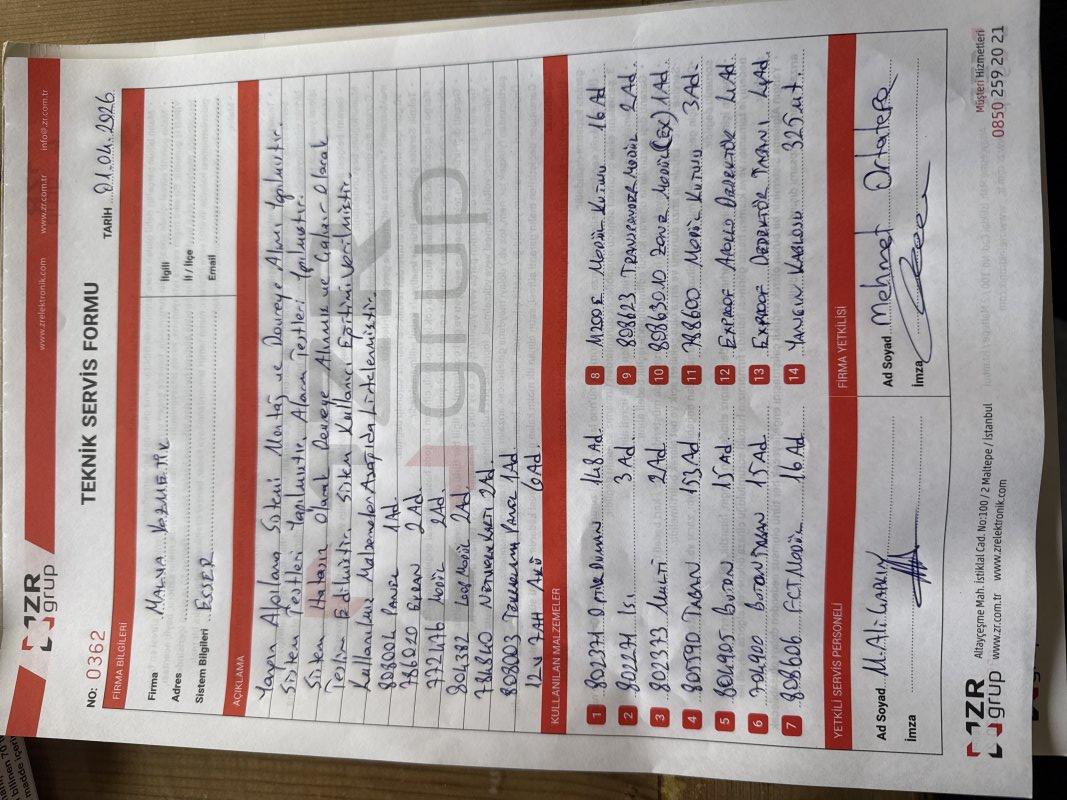 ZR grup
www.zrelektronik.com www.zr.com.tr info@zr.com.tr
TEKNİK SERVİS FORMU
No: 0362
TARİH 01.04.2026
FİRMA BİLGİLERİ
Firma MALNA KOZMETİK
Adres
Sistem Bilgileri ESSER
İlgili
İl / İlçe
Email
AÇIKLAMA
Yangın Algılama Sistemi Montaj ve Devreye Alımı Yapılmıştır.
Sistem Testleri Yapılmıştır. Alarm Testleri Yapılmıştır.
Sistem Hatasız Olarak Devreye Alınmış ve Çalışır Olarak
Teslim Edilmiştir. Sistem Kullanıcı Eğitimi Verilmiştir.
Kullanılmış Malzemeler Aşağıda Listelenmiştir.
808004 PANEL 1Ad
786020 EKRAN 2Ad.
772476 MODÜL 2Ad.
804382 LOOP MODÜL 2Ad
784840 NETWORK KARTI 2Ad.
808003 TEKRARLAMA PANELİ 1Ad
12V 7AH AKÜ 6Ad.
KULLANILAN MALZEMELER
1 802371 OPTİK DUMAN 148 Ad.
2 802271 ISI 3Ad
3 802373 MULTİ 2Ad.
4 805590 TABAN 153 Ad
5 804905 BUTON 15Ad.
6 704900 BUTON TABAN 15 Ad
7 808606 FCT. MODÜL 16 Ad
8 M200E MODÜL KUTUSU 16 Ad
9 808623 TRANSPONDER MODÜL 2Ad.
10 808630.10 ZONE MODÜL(EX) 1Ad
11 788600 MODÜL KUTUSU 3Ad.
12 EXPROOF APOLLO DEDEKTÖR 4Ad
13 EXPROOF DEDEKTÖR TABANI 4Ad.
14 YANGIN KABLOSU 325 mt.
YETKİLİ SERVİS PERSONELİ
Ad Soyad M. Ali
İmza
FİRMA YETKİLİSİ
Ad Soyad Mehmet Ortatepe
İmza
ZR grup
Altayçeşme Mah. İstiklal Cad. No:100 / 2 Maltepe / İstanbul
www.zr.com.tr www.zrelektronik.com
Müşteri Hizmetleri
0850 259 20 21